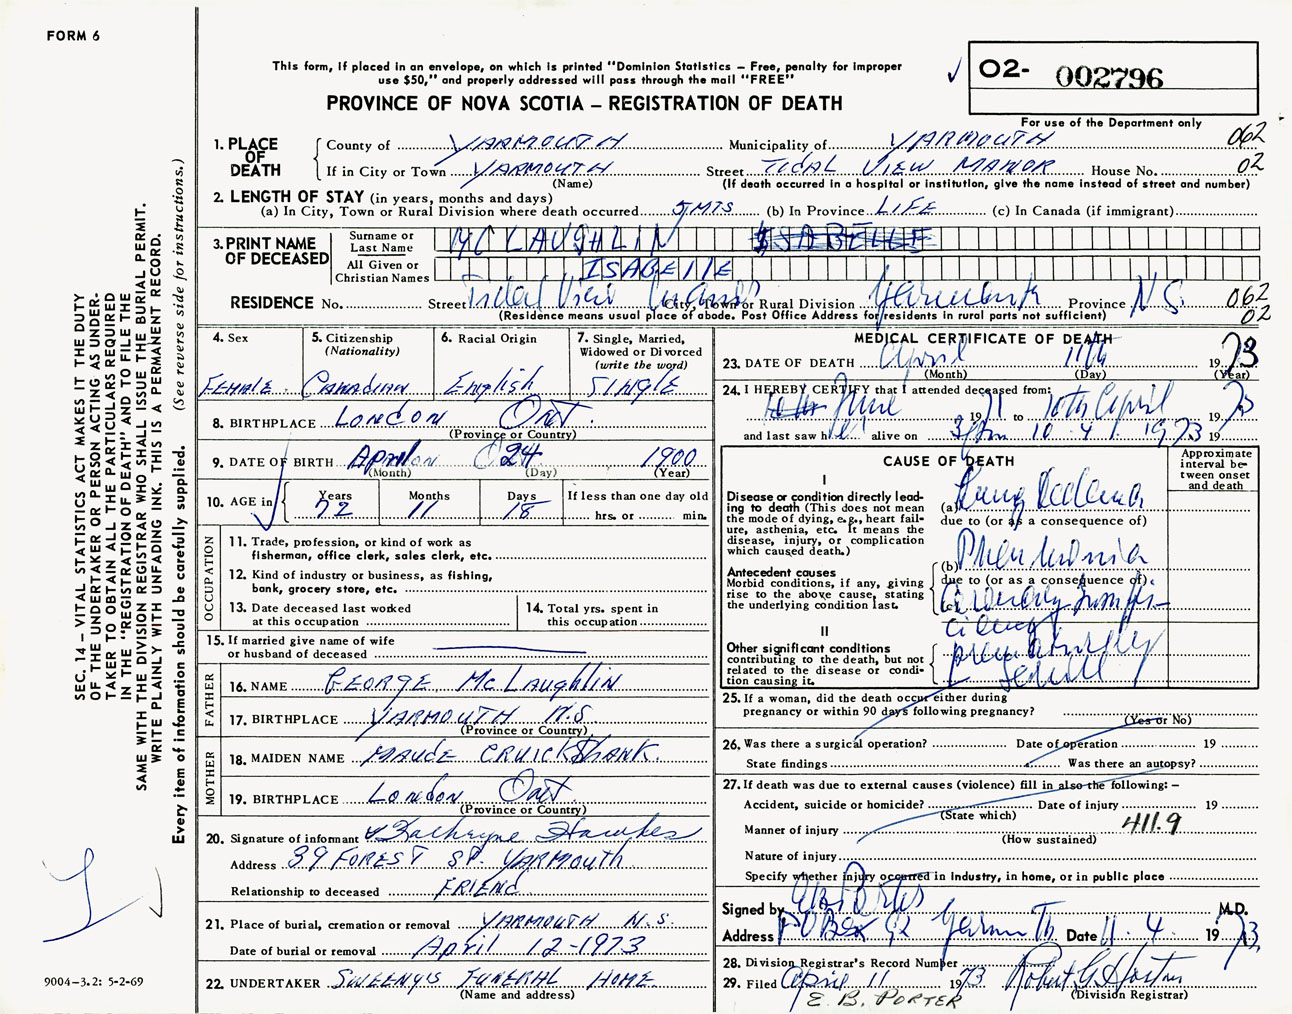 FORM 6
This form, if placed in an envelope, on which is printed "Dominion Statistics – Free, penalty for improper
use $50," and properly addressed will pass through the mail "FREE"
PROVINCE OF NOVA SCOTIA – REGISTRATION OF DEATH
02- 002796
For use of the Department only
1. PLACE OF DEATH
County of YARMOUTH Municipality of YARMOUTH 062
If in City or Town YARMOUTH Street TIDAL VIEW MANOR House No. 02
(Name) (If death occurred in a hospital or institution, give the name instead of street and number)
2. LENGTH OF STAY (in years, months and days)
(a) In City, Town or Rural Division where death occurred 5 MTS (b) In Province LIFE (c) In Canada (if immigrant)
3. PRINT NAME OF DECEASED
Surname or Last Name MC LAUGHLIN ISABELLE
All Given or Christian Names ISABELLE
RESIDENCE No. Street Tidal View Manor City, Town or Rural Division Yarmouth Province N S. 062
(Residence means usual place of abode. Post Office Address for residents in rural parts not sufficient) 02
4. Sex FEMALE
5. Citizenship (Nationality) Canadian
6. Racial Origin English
7. Single, Married, Widowed or Divorced (write the word) SINGLE
8. BIRTHPLACE LONDON Ont.
(Province or Country)
9. DATE OF BIRTH April 24 1900
(Month) (Day) (Year)
10. AGE in Years 72 Months 11 Days 18 If less than one day old hrs. or min.
OCCUPATION
11. Trade, profession, or kind of work as
fisherman, office clerk, sales clerk, etc.
12. Kind of industry or business, as fishing,
bank, grocery store, etc.
13. Date deceased last worked
at this occupation
14. Total yrs. spent in
this occupation
15. If married give name of wife
or husband of deceased
FATHER
16. NAME GEORGE McLaughlin
17. BIRTHPLACE YARMOUTH N.S
(Province or Country)
MOTHER
18. MAIDEN NAME MAUDE CRUICKSHANK.
19. BIRTHPLACE London Ont
(Province or Country)
20. Signature of informant Katheryne Hawkes
Address 39 FOREST ST. YARMOUTH
Relationship to deceased FRIEND
21. Place of burial, cremation or removal YARMOUTH N.S.
Date of burial or removal April 12-1973
22. UNDERTAKER SWEENY'S FUNERAL HOME
(Name and address)
MEDICAL CERTIFICATE OF DEATH
23. DATE OF DEATH April 11th 1973
(Month) (Day) (Year)
24. I HEREBY CERTIFY that I attended deceased from:
June 1971 to 10th April 1973
and last saw her alive on 10 4 1973 19
CAUSE OF DEATH
Approximate interval between onset and death
I
Disease or condition directly lead-
ing to death (This does not mean
the mode of dying, e.g., heart fail-
ure, asthenia, etc. It means the
disease, injury, or complication
which caused death.)
(a) Lung Oedema
due to (or as a consequence of)
(b) Pneumonia
Antecedent causes
Morbid conditions, if any, giving
rise to the above cause, stating
the underlying condition last.
due to (or as a consequence of)
(c) Coronary Insuffi-
ciency
II
Other significant conditions
contributing to the death, but not
related to the disease or condi-
tion causing it.
25. If a woman, did the death occur either during
pregnancy or within 90 days following pregnancy?
(Yes or No)
26. Was there a surgical operation? Date of operation 19
State findings Was there an autopsy?
27. If death was due to external causes (violence) fill in also the following: –
Accident, suicide or homicide? Date of injury 19
(State which)
Manner of injury 411.9
(How sustained)
Nature of injury
Specify whether injury occurred in industry, in home, or in public place
Signed by Porter M.D.
Address P O Box 92 Yarmouth Date 11. 4. 1973
28. Division Registrar's Record Number
29. Filed April 11 1973 Robert G. Horton
E. B. PORTER (Division Registrar)
SEC. 14 – VITAL STATISTICS ACT MAKES IT THE DUTY
OF THE UNDERTAKER OR PERSON ACTING AS UNDER-
TAKER TO OBTAIN ALL THE PARTICULARS REQUIRED
IN THE "REGISTRATION OF DEATH" AND TO FILE THE
SAME WITH THE DIVISION REGISTRAR WHO SHALL ISSUE THE BURIAL PERMIT.
WRITE PLAINLY WITH UNFADING INK. THIS IS A PERMANENT RECORD.
Every item of information should be carefully supplied. (See reverse side for instructions.)
9004-3.2: 5-2-69